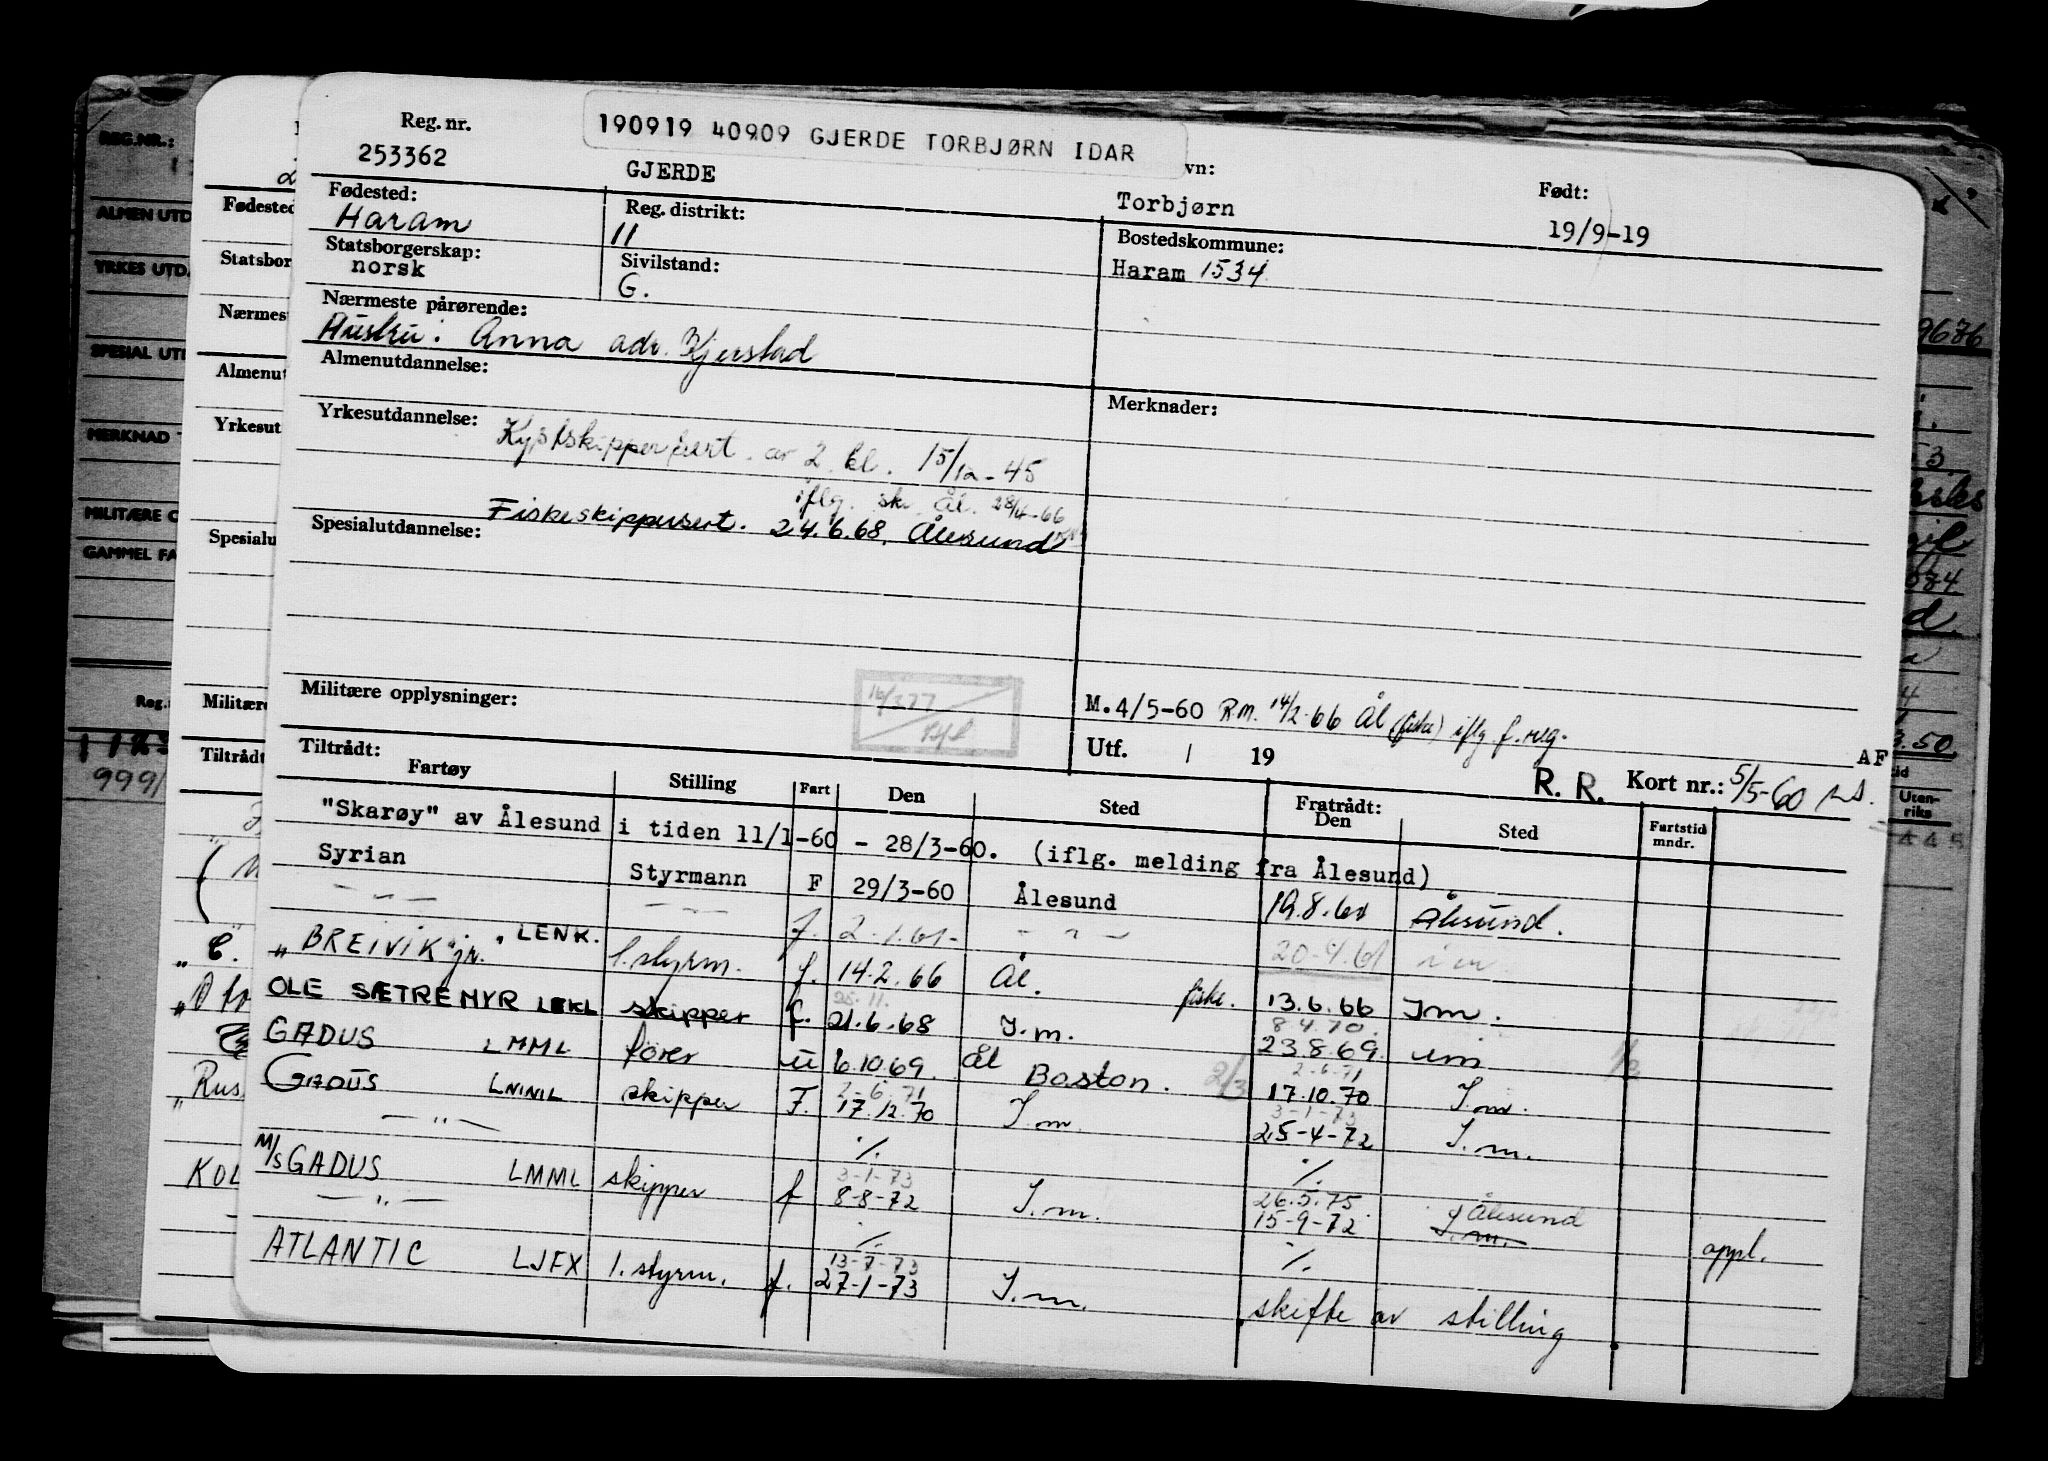 190919 40909 GJERDE TORBJØRN IDAR
Reg. nr. vn: Født:
253362 GJERDE Torbjørn 19/9-19
Fødested: Reg. distrikt: Bostedskommune:
Haram 11 Haram 1534
Statsborgerskap: Sivilstand:
norsk G.
Nærmeste pårørende:
Hustru: Anna adr. Kjerstad
Almenutdannelse: Merknader:
Yrkesutdannelse: Kystskippersert. av 2. kl. 15/12-45
iflg. sk. Ål. 28/4-66
Fiskeskippersert. 24.6.68. Ålesund
Spesialutdannelse:
Militære opplysninger: M.4/5-60 Rm. 14/2-66 Ål (fiske) iflg. f. reg.
Utf. / 19 AF
Tiltrådt: R. R. Kort nr.: 5/5-60
Fartøy Stilling Fart Den Sted Fratrådt: Den Sted Fartstid mndr.
"Skarøy" av Ålesund i tiden 11/1-60 - 28/3-60. (iflg. melding fra Ålesund)
Syrian Styrmann F 29/3-60 Ålesund 19.8.60 Ålesund.
— " — — " — f. 2-1.61- - " - 20-4.61
"BREIVIK jr." LENK. 1. styrm. f. 14.2.66 Ål. fiske. 13.6.66 Im.
25.11. 8.4.70.
OLE SÆTREMYR LEKL skipper f. 21.6.68 I.m. 23.8.69. um
GADUS LMML fører u 6.10.69. Ål Boston. 2/3 17.10.70 I.m.
2-6.71 2-6-71
GADUS LMML skipper F. 17.12.70 I.m. 25-4-72 I.m.
3-1-73
— " — % %
3-1-73 26.5.75 Ålesund
M/S GADUS LMML skipper f 8-8-72 I.m. 15-9-72 I.m.
— " — % % oppl.
13-7-73
ATLANTIC LJFX 1. styrm. f. 27-1-73 I.m. skifte av stilling
REG.NR.:
ALMEN UTD
YRKES UTD.
SPESIAL UT
MERKNAD
MILITÆRE O
GAMMEL FA
Reg.
999/
Fødested
Statsbor
Nærmest
Almenut
Yrkesut
Spesialu
Militære
Tiltrådt
Rus
KOL
9676
3.50
Uten-
riks
445